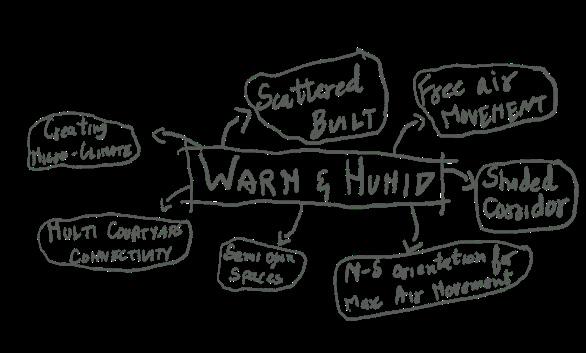 Scattered
BUILT
Free air
MOVEMENT
Creating
MICRO-CLIMATE
WARM & HUMID
Shaded
Corridor
MULTI COURTYARD
CONNECTIVITY
Semi open
Spaces
N-S orientation for
Max Air Movement